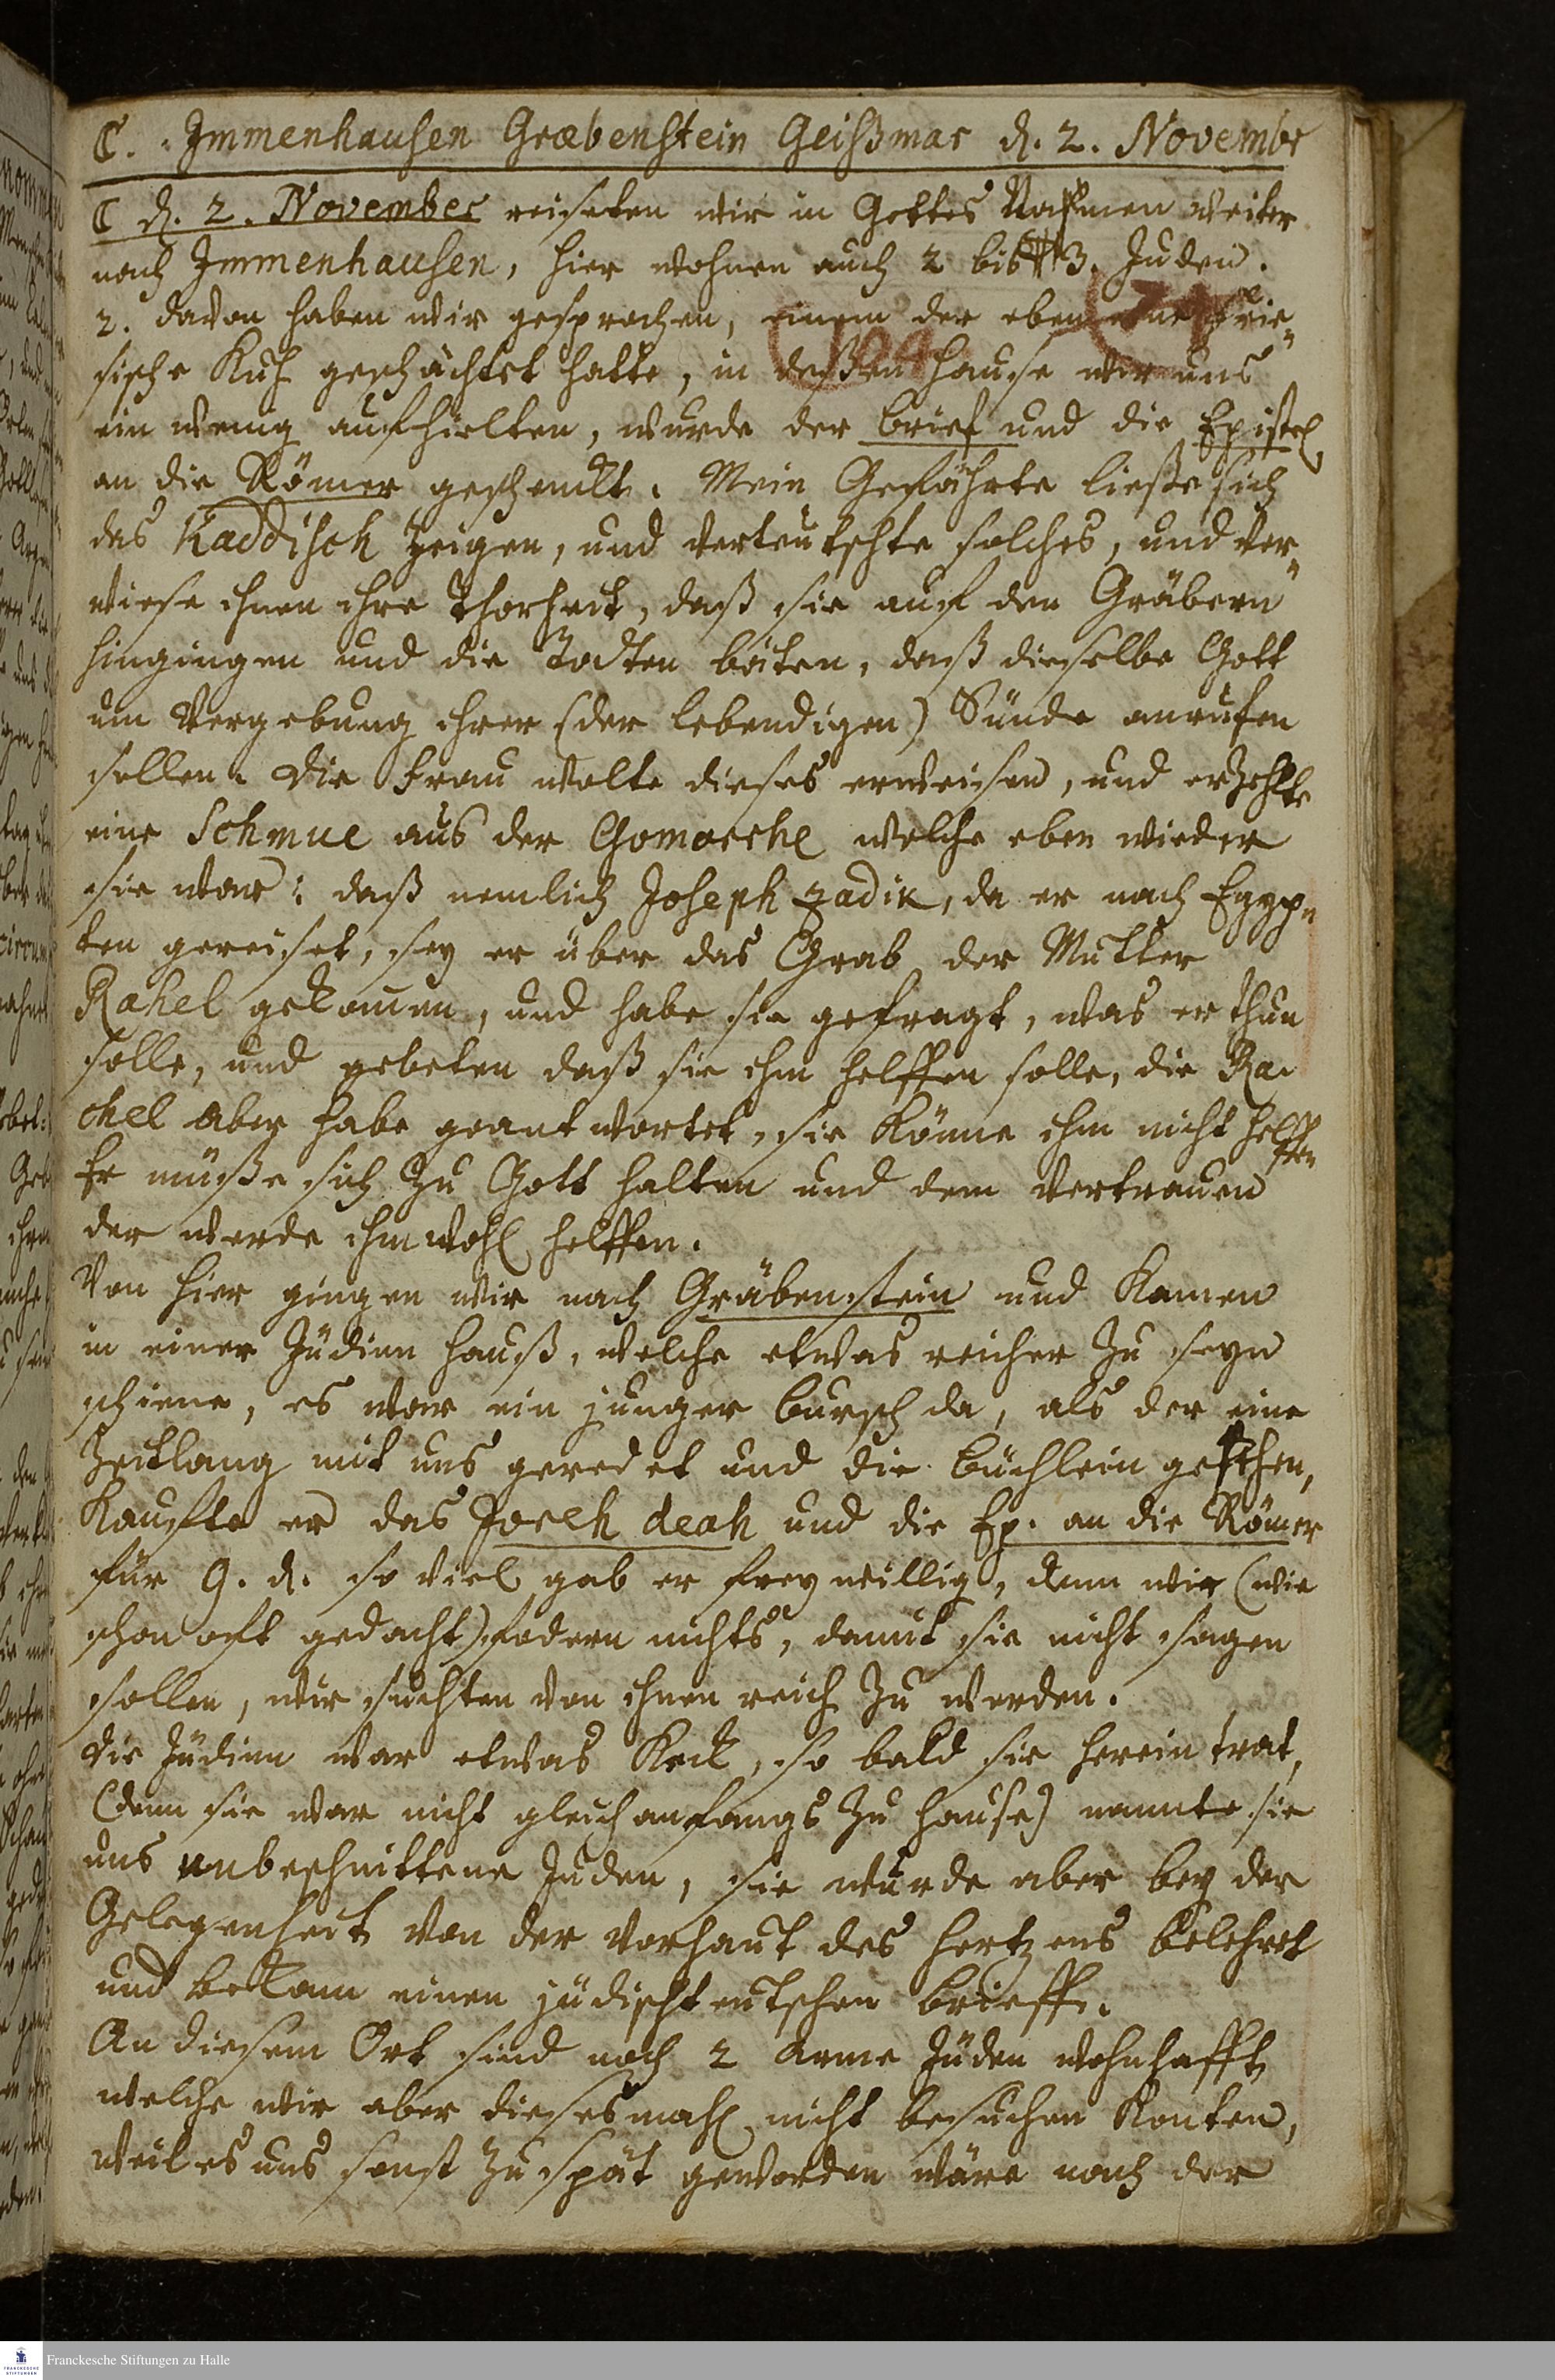 ☾. Immenhausen Græbenstein Geißmar d. 2. Novembr
☾ d. 2. November reiseten wir in Gottes Nahmen weiter
nach Immenhausen, hier wohnen auch 2 bis 3. Juden.
2. davon haben wir gesprochen, einem der eben eine Frie„
sische Kuh geschächtet hatte, in deßen Hause wir uns
ein wenig aufhielten, wurde der brief und die Epistel
an die Römer geschenckt. Mein Gefährte ließe sich
das Kaddisch zeigen, und verteutschte solches, und ver„
wiese ihnen ihre Thorheit, daß sie auf den Gräbern
hingingen und die Todten bäten, daß dieselbe Gott
um Vergebung ihrer (der lebendigen) Sünde anrufen
sollen. Die Frau wolte dieses erweisen, und erzehlte
eine Schmue aus der Gomorche welche eben wieder
sie war: daß nemlich Joseph zadik, da er nach Egyp„
ten gereiset, sey er über das Grab der Mutter
Rahel gekommen, und habe sie gefragt, was er thun
solle, und gebeten daß sie ihm helffen solle, die Ra„
chel aber habe geantwortet, sie könne ihm nicht helffen
Er müße sich zu Gott halten und dem vertrauen
der werde ihm wohl helffen.
Von hier gingen wir nach Gräbenstein und kamen
in einer Jüdinn Hauß, welche etwas reicher zu seyn
schiene, es war ein junger bursch da, als der eine
Zeitlang mit uns geredet und die büchlein gesehen,
kauffte er das Joreh deah und die Ep. an die Römer
für 9. d. so viel gab er freywillig, denn wir (wie
schon oft gedacht) fodern nichts, damit sie nicht sagen
sollen, wir suchten von ihnen reich zu werden.
Die Jüdinn war etwas keck, so bald sie herein trat,
(denn sie war nicht gleich anfangs zu Hause) nannte sie
uns unbeschnittene Juden, sie wurde aber bey der
Gelegenheit von der Vorhaut des Hertzens belehret
und bekam einen jüdischteutschen brieff.
An diesem Ort sind noch 2 arme Juden wohnhafft
welche wir aber dieses mahl nicht besuchen konten,
weil es uns sonst zu spät geworden wäre nach der
Franckesche Stiftungen zu Halle